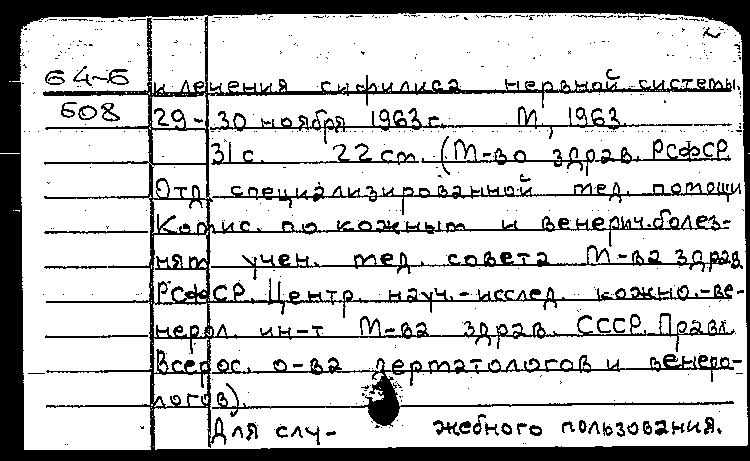 64-6
608
и лечения сифилиса нервной системы.
29-30 ноября 1963 г. М., 1963.
31 с. 22 см. (М-во здрав. РСФСР.
Отд. специализированной мед. помощи
Комис. по кожным и венерич. болез-
ням учен. мед. совета М-ва здрав.
РСФСР. Центр. науч.-исслед. кожно-ве-
нерол. ин-т М-ва здрав. СССР. Правл.
Всерос. о-ва дерматологов и венеро-
логов).
Для слу- жебного пользования.